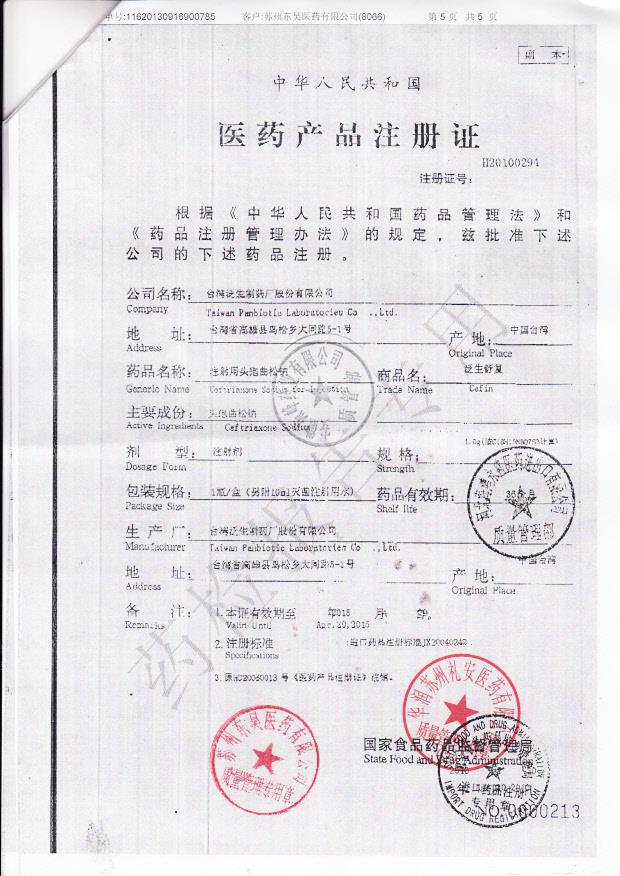 单号:11620130916900785 客户:苏州东吴医药有限公司(8066) 第 5 页 共 5 页
副 本
中华人民共和国
医药产品注册证
H20100294
注册证号:
根据《中华人民共和国药品管理法》和
《药品注册管理办法》的规定，兹批准下述
公司的下述药品注册。
公司名称: 台湾泛生制药厂股份有限公司
Company Taiwan Panbiotic Laboratories Co .,Ltd.
地 址: 台湾省高雄县鸟松乡大同路5-1号 产 地: 中国台湾
Address Original Place
药品名称: 注射用头孢曲松钠 商品名: 泛生舒复
Generic Name Ceftriaxone Sodium for Injection Trade Name Cefin
主要成份: 头孢曲松钠
Active Ingredients Ceftriaxone Sodium
剂 型: 注射剂 规 格: 1.0g
Dosage Form Strength
包装规格: 1瓶/盒 (另附10ml灭菌注射用水) 药品有效期: 36个月
Package Size Shelf life
生 产 厂: 台湾泛生制药厂股份有限公司
Manufacturer Taiwan Panbiotic Laboratories Co .,Ltd.
地 址: 台湾省高雄县鸟松乡大同路5-1号 产 地: 中国台湾
Address Original Place
备 注: 1.本证有效期至 年015 月
Remarks Valid Until Apr.20,2015
2.注册标准 :进口药品注册标准JX20040242
Specifications
3.原HC20050013号《医药产品注册证》注销。
国家食品药品监督管理局
State Food and Drug Administration
NO 0000213
药检报告专用
苏州东吴医药有限公司
质量管理专用章
华润苏州礼安医药有限公司
质量管理部
进口药品注册
专用章
IMPORT DRUG REGISTRATION